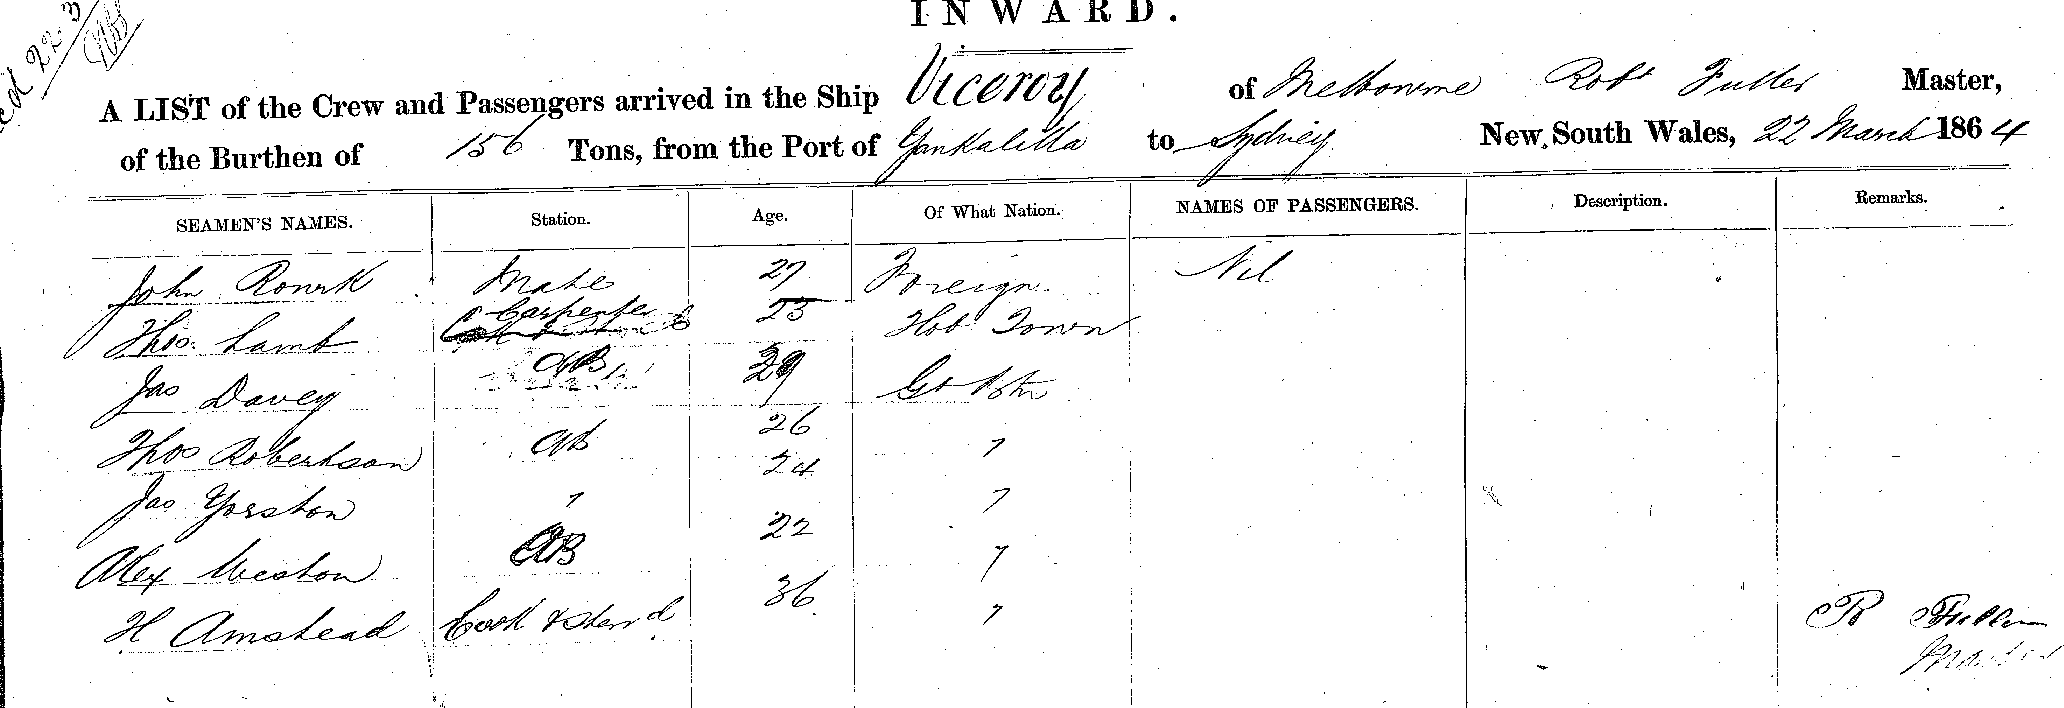 INWARD.
A LIST of the Crew and Passengers arrived in the Ship Viceroy of Melbourne Robt Fuller Master,
of the Burthen of 156 Tons, from the Port of Yankalilla to Sydney New South Wales, 22 March 1864
SEAMEN'S NAMES. Station. Age. Of What Nation. NAMES OF PASSENGERS. Description. Remarks.
John Rourk Mate 27 Foreign Nil
Thos. Lamb Carpenter 25 Hob Town
Jas Davey AB 29 Gt Btn
Thos Robertson AB 26 "
Jas Yorston " 24 "
Alex Weston AB 22 "
H Amstead Cook & Stewd 36 " R Fuller
Master